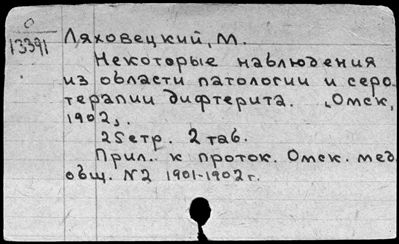 О
13391
Ляховецкий, М.
Некоторые наблюдения
из области патологии и серо-
терапии дифтерита. [Омск,
1902].
25стр. 2 таб.
Прил. к проток. Омск. мед.
общ. N2 1901-1902 г.